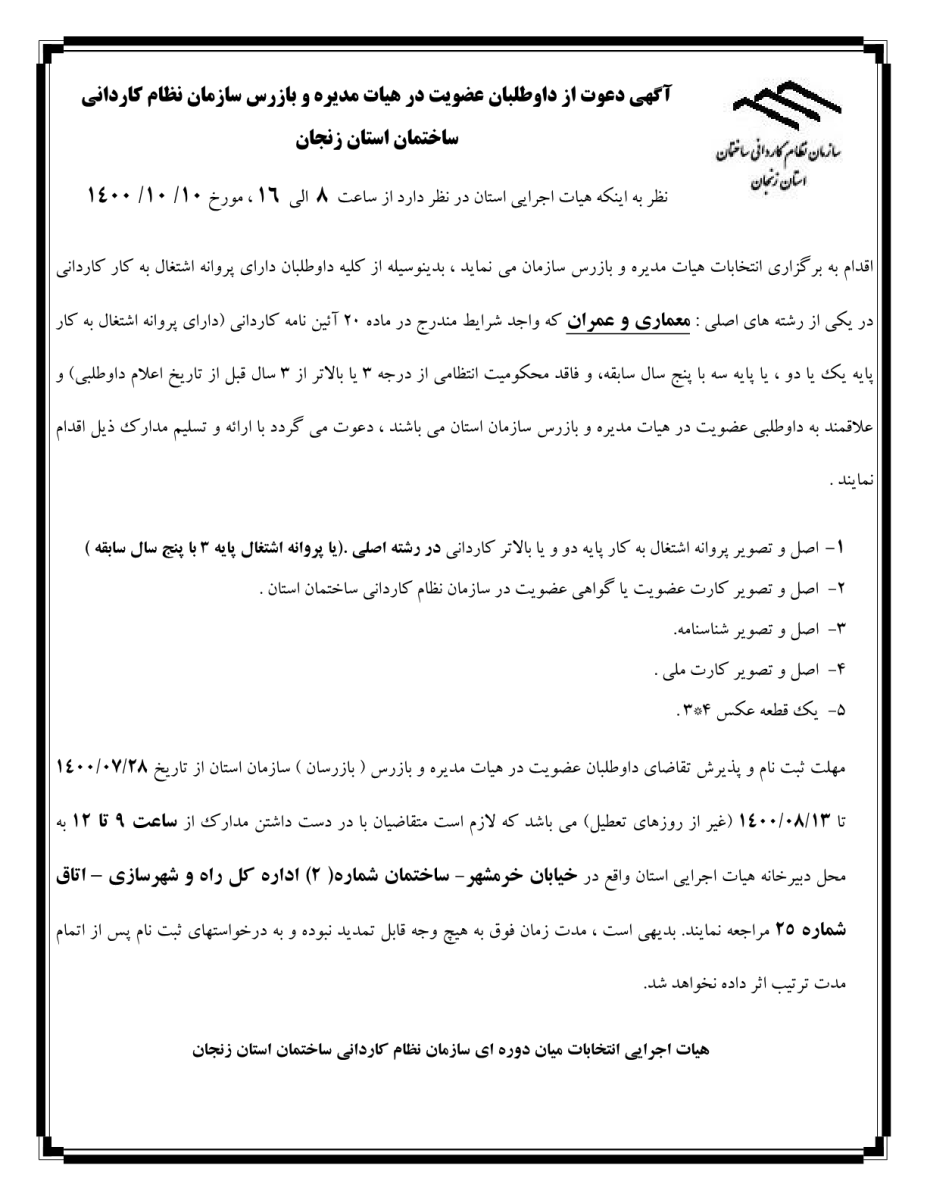 آگهی دعوت از داوطلبان عضویت در هیات مدیره و بازرس سازمان نظام کاردانی
ساختمان استان زنجان
سازمان نظام کاردانی ساختمان
استان زنجان
نظر به اینکه هیات اجرایی استان در نظر دارد از ساعت ۸ الی ۱٦ ، مورخ ۱۰ /۱۰ /۱٤۰۰
اقدام به برگزاری انتخابات هیات مدیره و بازرس سازمان می نماید ، بدینوسیله از کلیه داوطلبان دارای پروانه اشتغال به کار کاردانی
در یکی از رشته های اصلی : معماری و عمران که واجد شرایط مندرج در ماده ۲۰ آئین نامه کاردانی (دارای پروانه اشتغال به کار
پایه یک یا دو ، یا پایه سه با پنج سال سابقه، و فاقد محکومیت انتظامی از درجه ۳ یا بالاتر از ۳ سال قبل از تاریخ اعلام داوطلبی) و
علاقمند به داوطلبی عضویت در هیات مدیره و بازرس سازمان استان می باشند ، دعوت می گردد با ارائه و تسلیم مدارک ذیل اقدام
نمایند .
۱- اصل و تصویر پروانه اشتغال به کار پایه دو و یا بالاتر کاردانی در رشته اصلی .(یا پروانه اشتغال پایه ۳ با پنج سال سابقه )
۲- اصل و تصویر کارت عضویت یا گواهی عضویت در سازمان نظام کاردانی ساختمان استان .
۳- اصل و تصویر شناسنامه.
۴- اصل و تصویر کارت ملی .
۵- یک قطعه عکس ۴*۳ .
مهلت ثبت نام و پذیرش تقاضای داوطلبان عضویت در هیات مدیره و بازرس ( بازرسان ) سازمان استان از تاریخ ۱٤۰۰/۰۷/۲۸
تا ۱٤۰۰/۰۸/۱۳ (غیر از روزهای تعطیل) می باشد که لازم است متقاضیان با در دست داشتن مدارک از ساعت ۹ تا ۱۲ به
محل دبیرخانه هیات اجرایی استان واقع در خیابان خرمشهر- ساختمان شماره( ۲) اداره کل راه و شهرسازی – اتاق
شماره ۲۵ مراجعه نمایند. بدیهی است ، مدت زمان فوق به هیچ وجه قابل تمدید نبوده و به درخواستهای ثبت نام پس از اتمام
مدت ترتیب اثر داده نخواهد شد.
هیات اجرایی انتخابات میان دوره ای سازمان نظام کاردانی ساختمان استان زنجان